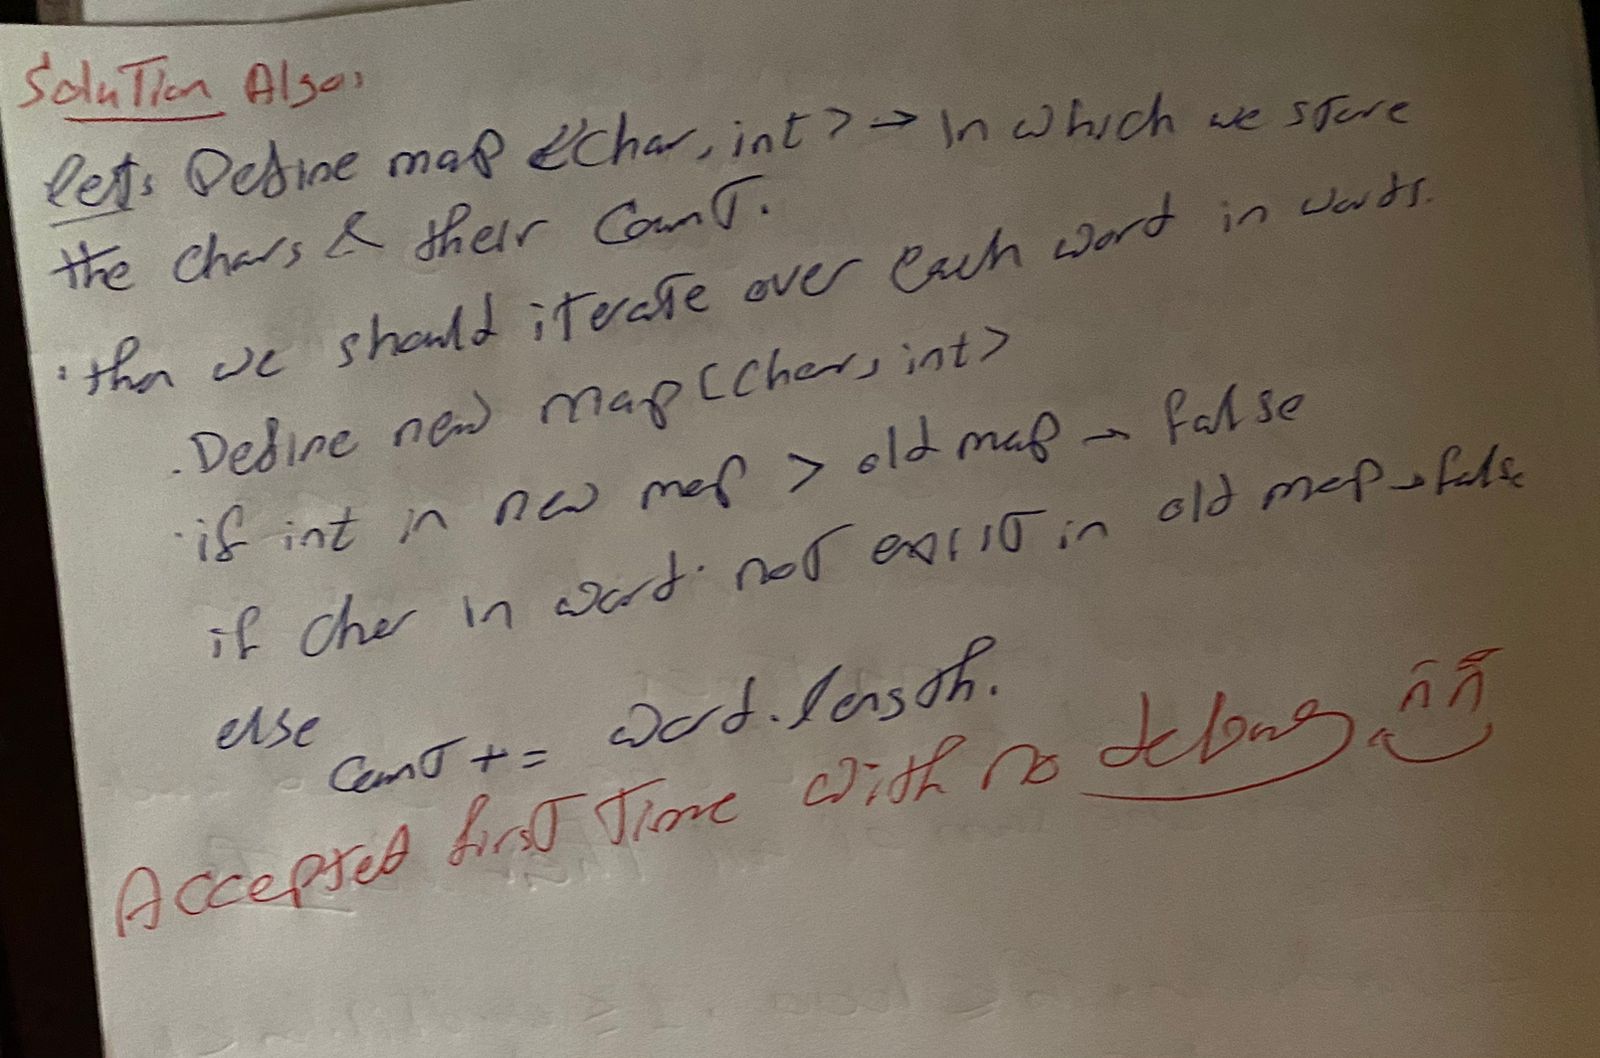 Solution Algo:
lets Define map <Char, int> → In which we store
the chars & their Count.
· then we should iterate over each word in words.
. Define new map <Char, int>
· if int in new map > old map → false
if char in word not exsist in old map → false
else
Count += word.length.
Accepted first Time with no debug.